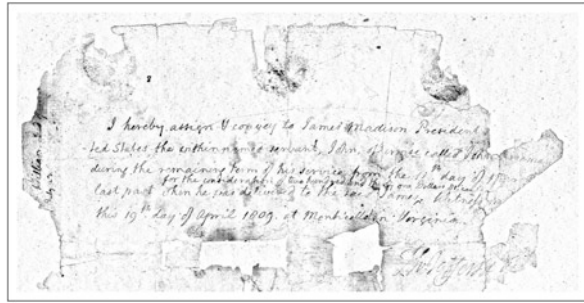 I hereby assign & convey to James Madison President
-ted States the within named servant, John,
during the remaining term of his service from the 11th day of
for the consideration of two hundred and thirty one Dollars
last past when he was delivered to the said James. Witness
this 19th day of April 1809. at Monticello in Virginia.
Th: Jefferson
William